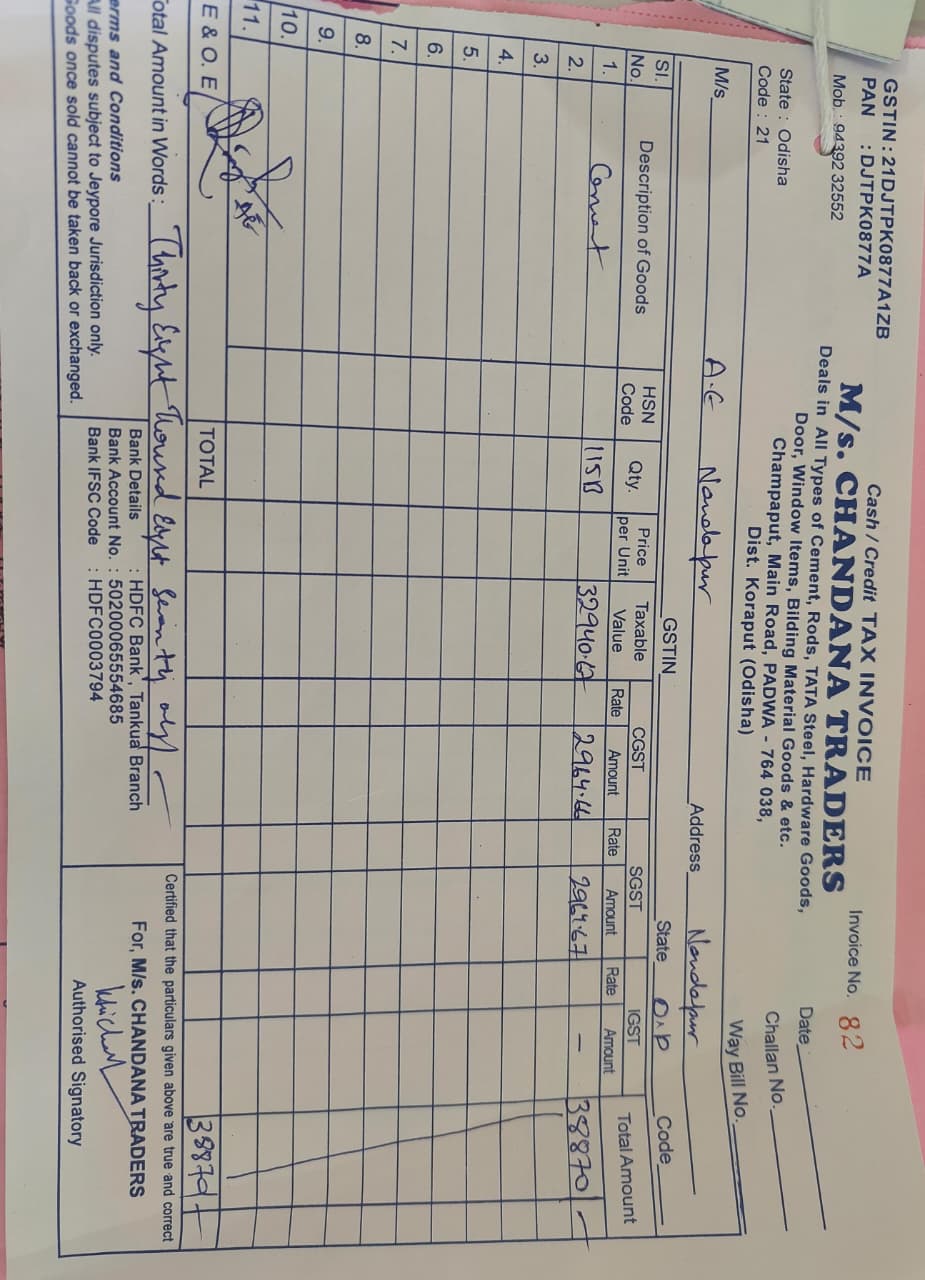 GSTIN : 21DJTPK0877A1ZB
PAN : DJTPK0877A
Mob : 94392 32552
State : Odisha
Code : 21
Cash / Credit TAX INVOICE
M/s. CHANDANA TRADERS
Deals in All Types of Cement, Rods, TATA Steel, Hardware Goods,
Door, Window Items, Bilding Material Goods & etc.
Champaput, Main Road, PADWA - 764 038,
Dist. Koraput (Odisha)
Invoice No. 82
Date
Challan No.
Way Bill No.
M/s A.E Nandapur Address Nandapur
GSTIN State Code
Sl. No. Description of Goods HSN Code Qty. Price per Unit Taxable Value CGST Rate Amount SGST Rate Amount IGST Rate Amount Total Amount
1. Cement 115B 32940.67 2964.66 2964.67 — 38870/-
2.
3.
4.
5.
6.
7.
8.
9.
10.
11.
E & O. E TOTAL 38870/-
otal Amount in Words: Thirty Eight Thousand Eight Seventy only
erms and Conditions
All disputes subject to Jeypore Jurisdiction only.
oods once sold cannot be taken back or exchanged.
Bank Details : HDFC Bank, Tankua Branch
Bank Account No. : 50200065554685
Bank IFSC Code : HDFC0003794
Certified that the particulars given above are true and correct
For, M/s. CHANDANA TRADERS
Authorised Signatory